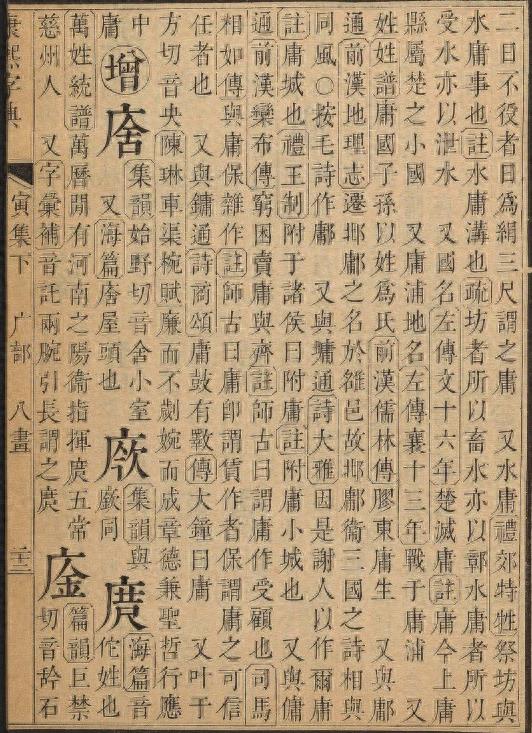 二日不役者日爲絹三尺謂之庸 又水庸禮郊特牲祭坊與
水庸事也註水庸溝也疏坊者所以畜水亦以鄣水庸者所以
受水亦以泄水 又國名左傳文十六年楚滅庸註庸今上庸
縣屬楚之小國 又庸浦地名左傳襄十三年戰于庸浦 又
姓姓譜庸國子孫以姓爲氏前漢儒林傳膠東庸生 又與鄘
通前漢地理志遷邶鄘之名於雒邑故邶鄘衞三國之詩相與
同風○按毛詩作鄘 又與墉通詩大雅因是謝人以作爾庸
註庸城也禮王制附于諸侯曰附庸註附庸小城也 又與傭
通前漢欒布傳窮困賣庸與齊註師古曰謂庸作受顧也司馬
相如傳與庸保雜作註師古曰庸卽謂賃作者保謂庸之可信
任者也 又與鏞通詩商頌庸鼓有斁傳大鐘曰庸 又叶于
方切音央陳琳車渠椀賦廉而不劌婉而成章德兼聖哲行應
中庸
增
㢉
集韻始野切音舍小室
又海篇㢉屋頭也
集韻與
廞同
庹
海篇音
佗姓也
萬姓統譜萬曆閒有河南之陽衞指揮庹五常
慈州人 又字彙補音託兩腕引長謂之庹
篇韻巨禁
切音
石
康熙字典 寅集下 广部 八畫